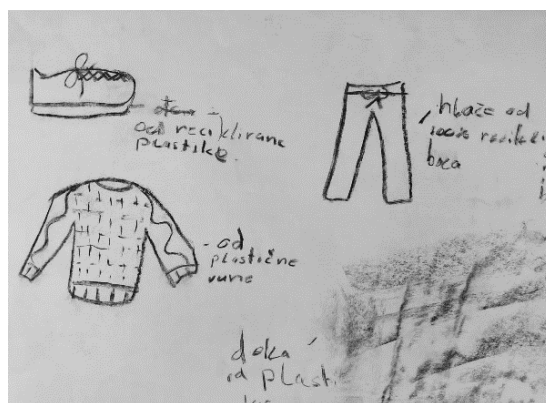 od reciklirane
plastike.
hlače od
100%
- od
plastične
vune
deka
od plast